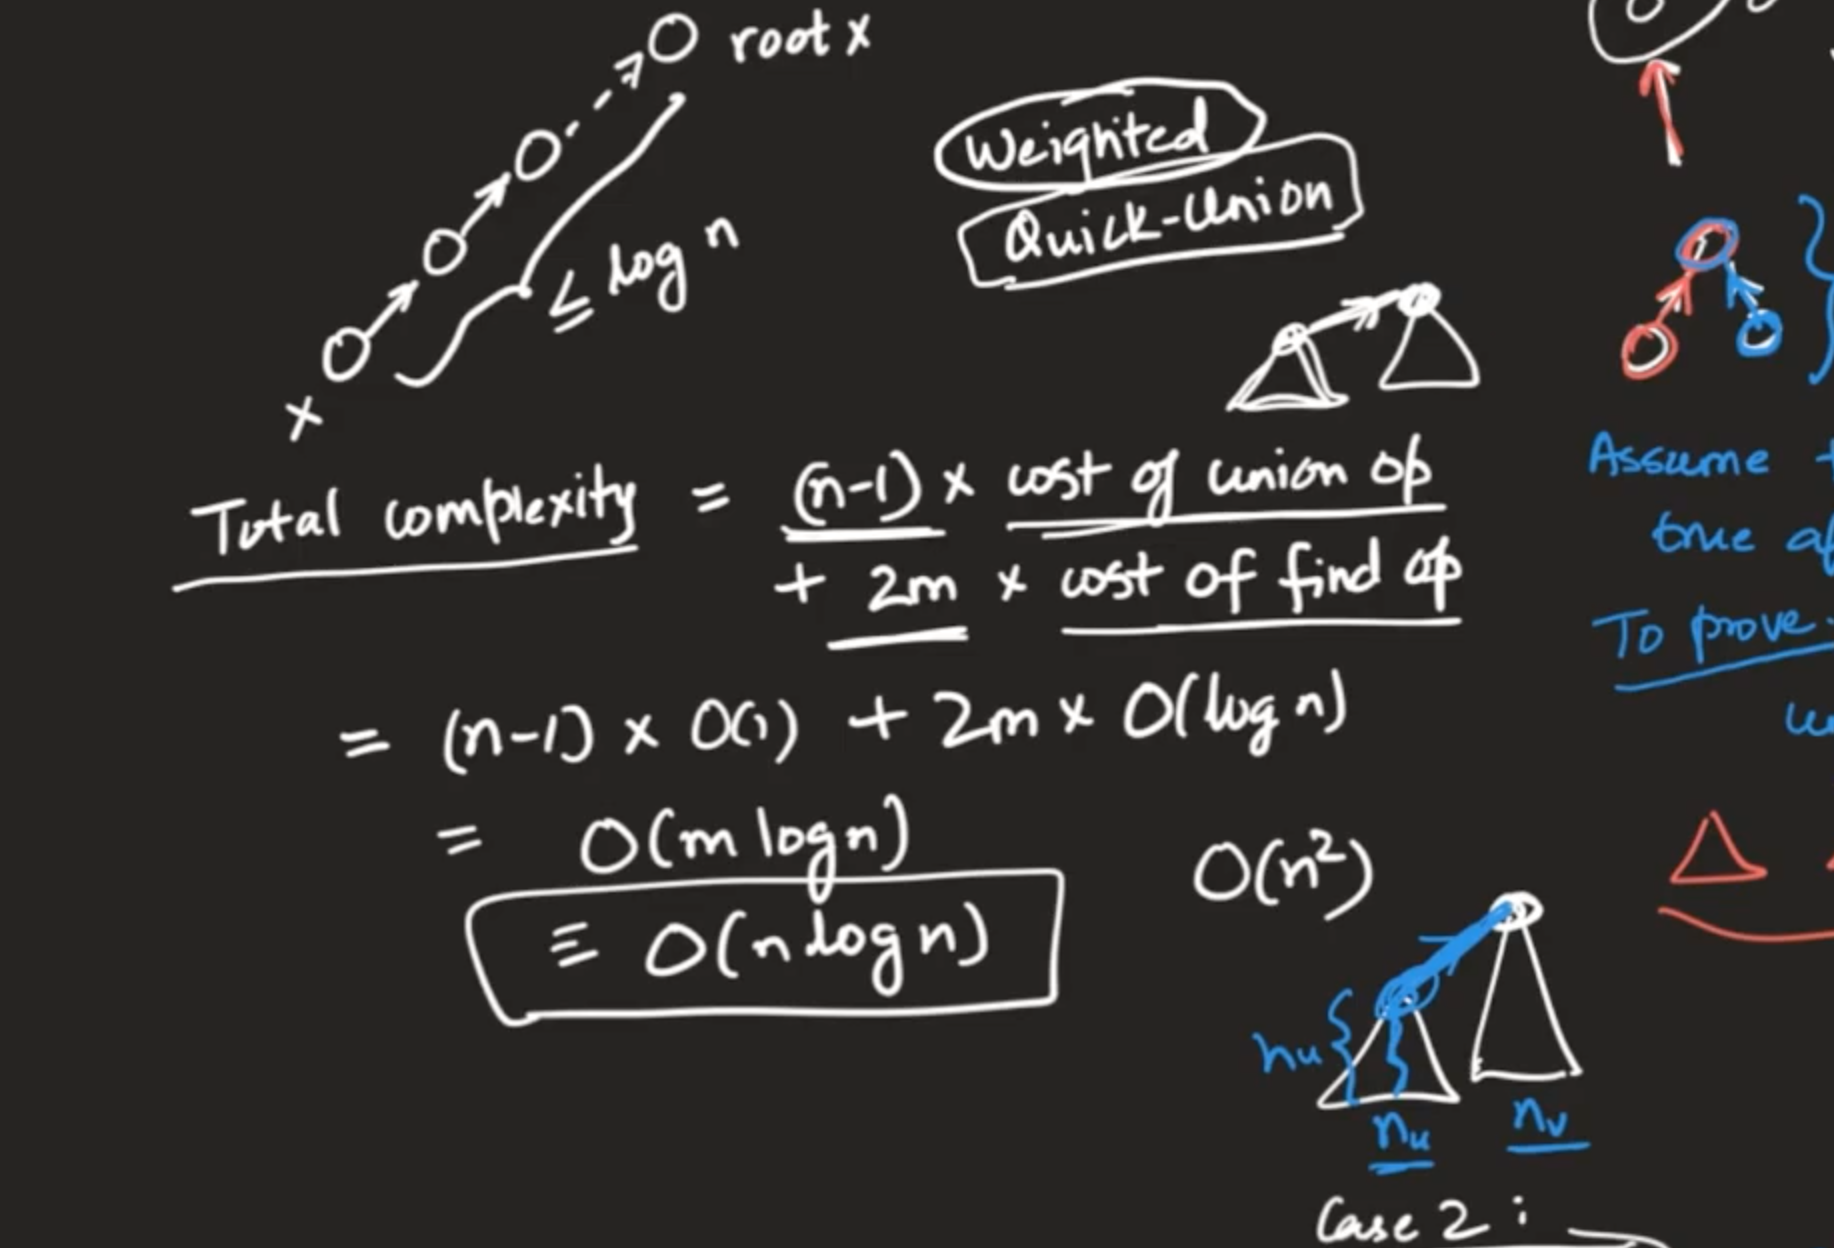 root x
Weighted
Quick-Union
≤ log n
x
Total complexity = (n-1) × cost of union op
+ 2m × cost of find op
= (n-1) × O(1) + 2m × O(log n)
= O(m log n)
≡ O(n log n)
O(n²)
hu
nu
nv
Case 2 :
Assume
true af
To prove